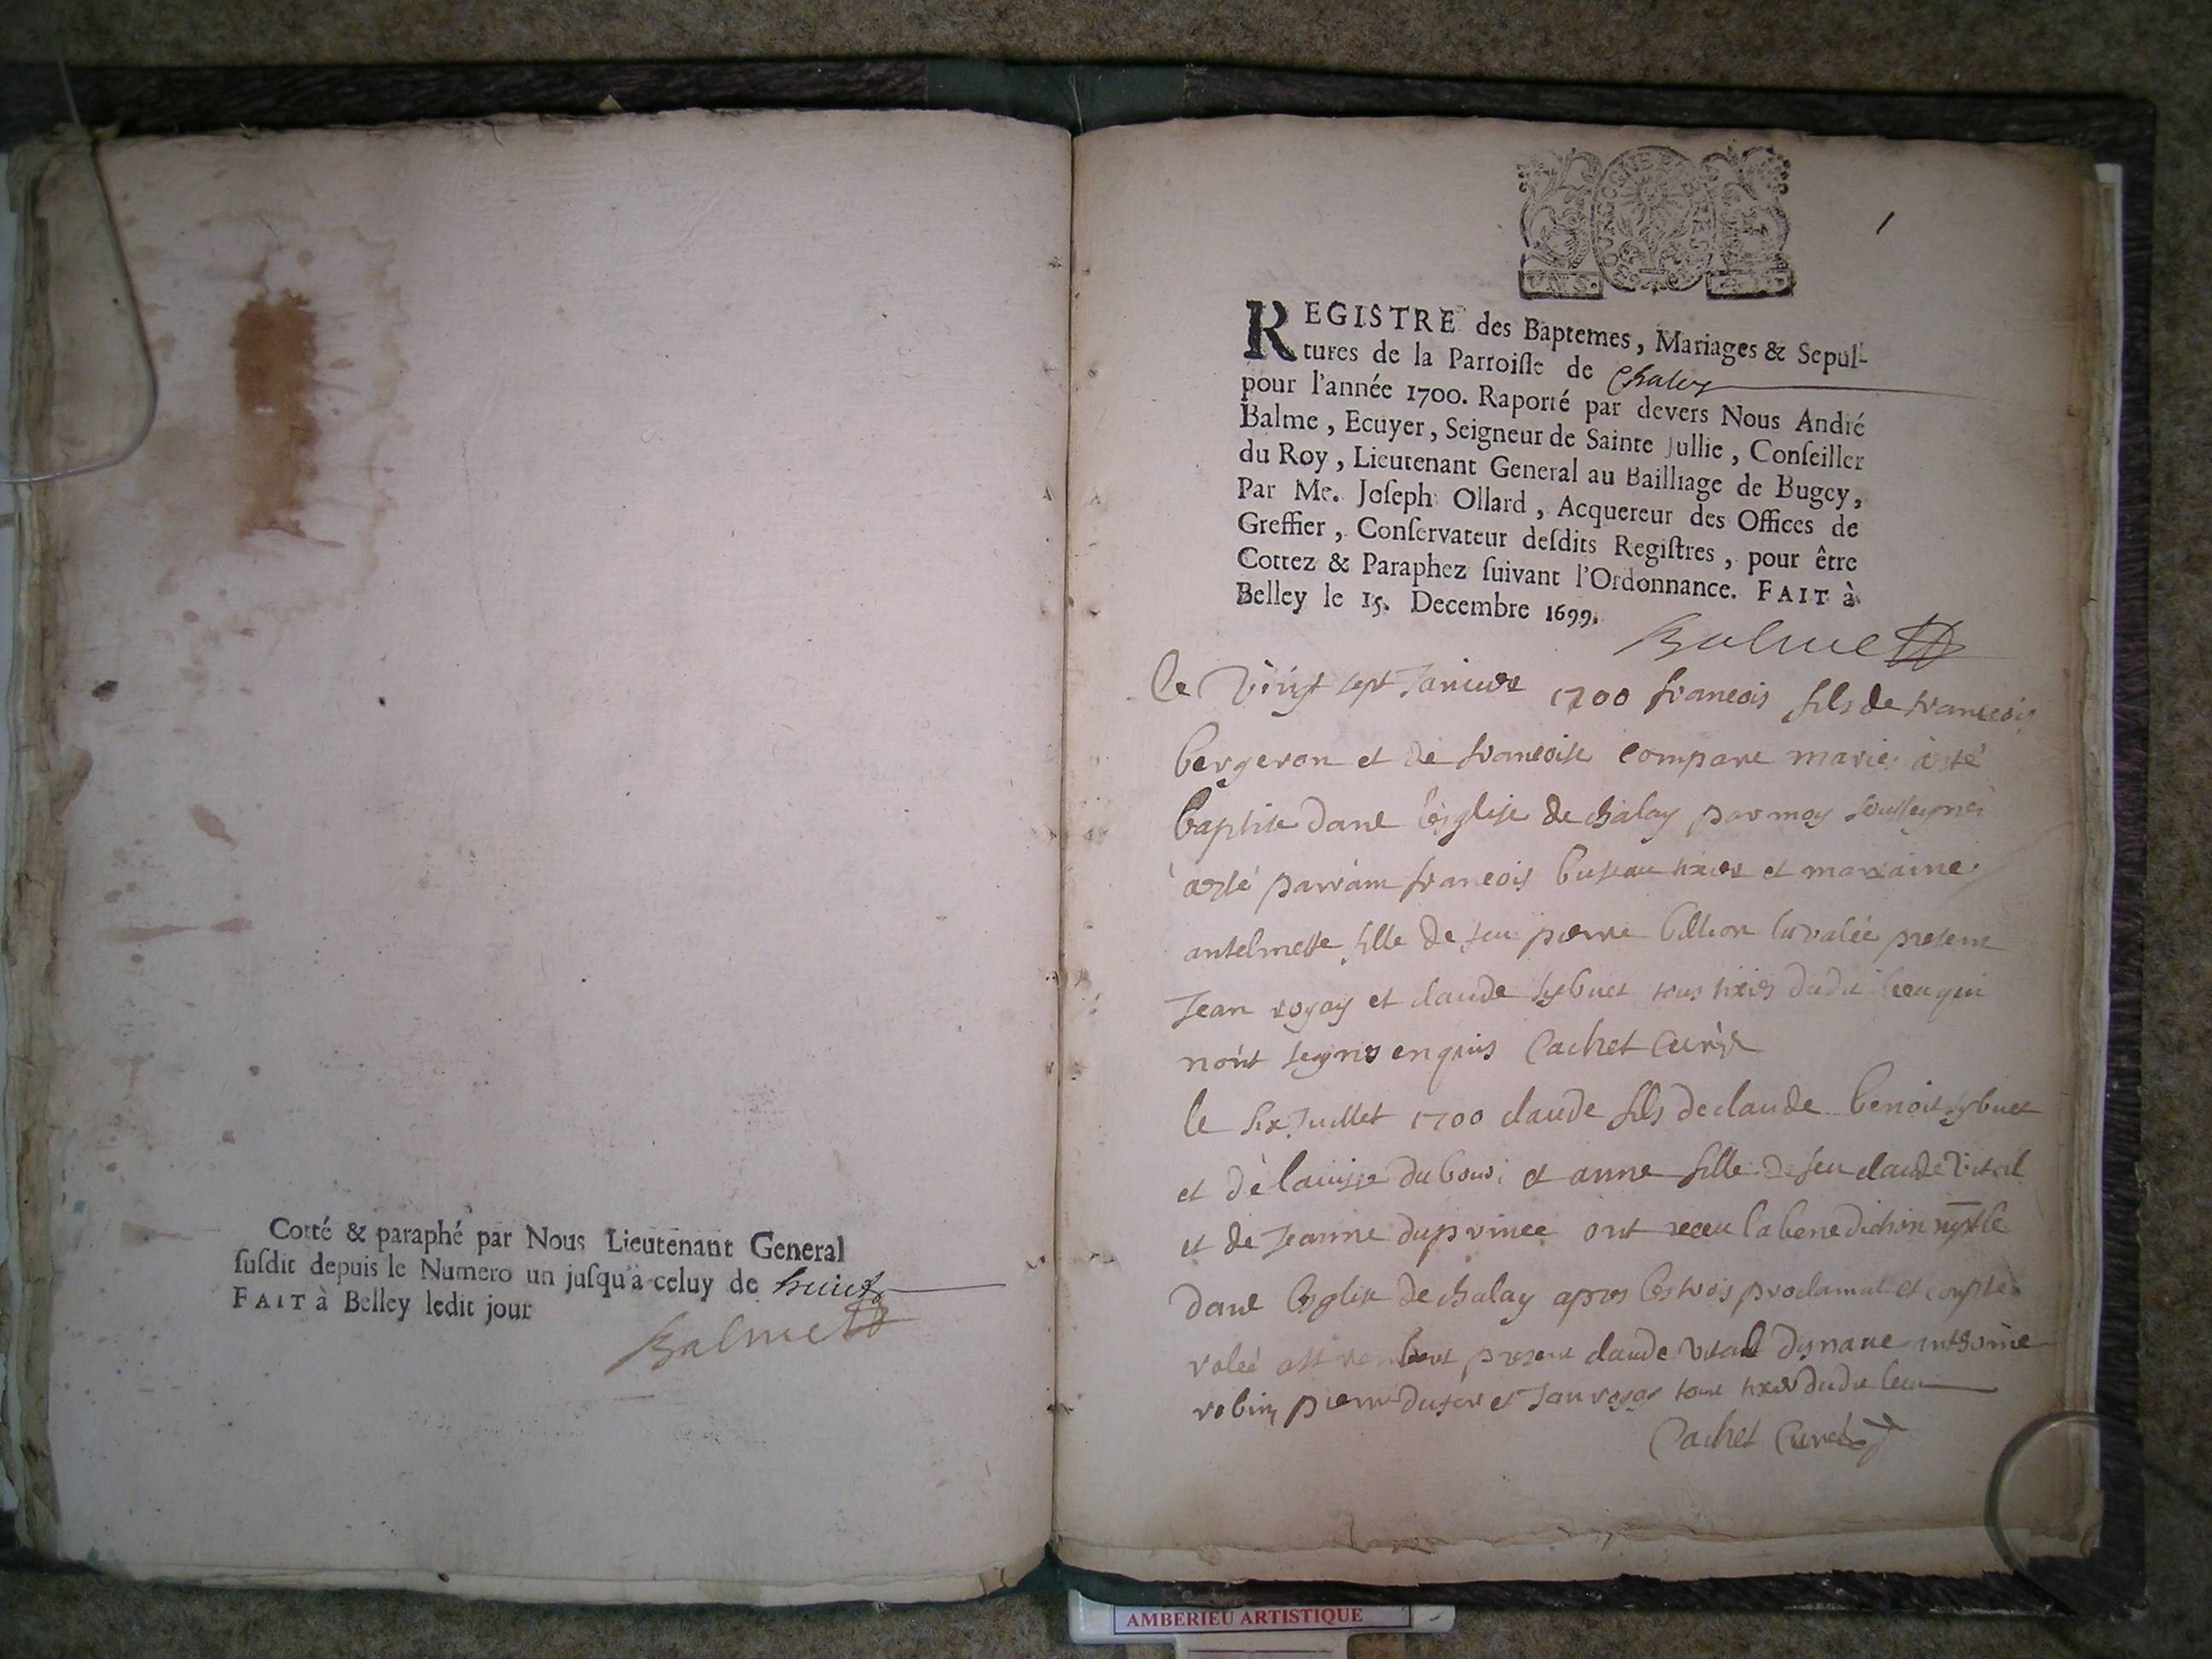 Cotté & paraphé par Nous Lieutenant General
ſuſdit depuis le Numero un juſqu'à celuy de huict
FAIT à Belley ledit jour
Balme
1
REGISTRE des Baptemes, Mariages & Sepul-
tures de la Parroiſſe de Chaley
pour l'année 1700. Raporté par devers Nous André
Balme, Ecuyer, Seigneur de Sainte Jullie, Conſeiller
du Roy, Lieutenant General au Bailliage de Bugey,
Par Me. Joſeph Ollard, Acquereur des Offices de
Greffier, Conſervateur deſdits Regiſtres, pour être
Cottez & Paraphez ſuivant l'Ordonnance. FAIT à
Belley le 15. Decembre 1699.
Balme
Le vingt sept Janvier 1700 francois fils de francois
bergeron et de francoise compare maries a esté
baptise dans l'eglise de chalay par moy soussigné
a esté parrain francois et marraine
antelmette fille de feu pierre present
Jean rogay et claude sybuet tous dudit lieu qui
n'ont signé enquis Cachet Curé
le six Juillet 1700 claude fils de claude benoit sybuet
et de et anne fille de feu claude vital
et de Jeanne duprince ont receu la benediction
dans l'eglise de chalay apres les trois proclamat et
present claude vital
robin pierre et Jean rogay tous dudit lieu
Cachet Curé
AMBERIEU ARTISTIQUE